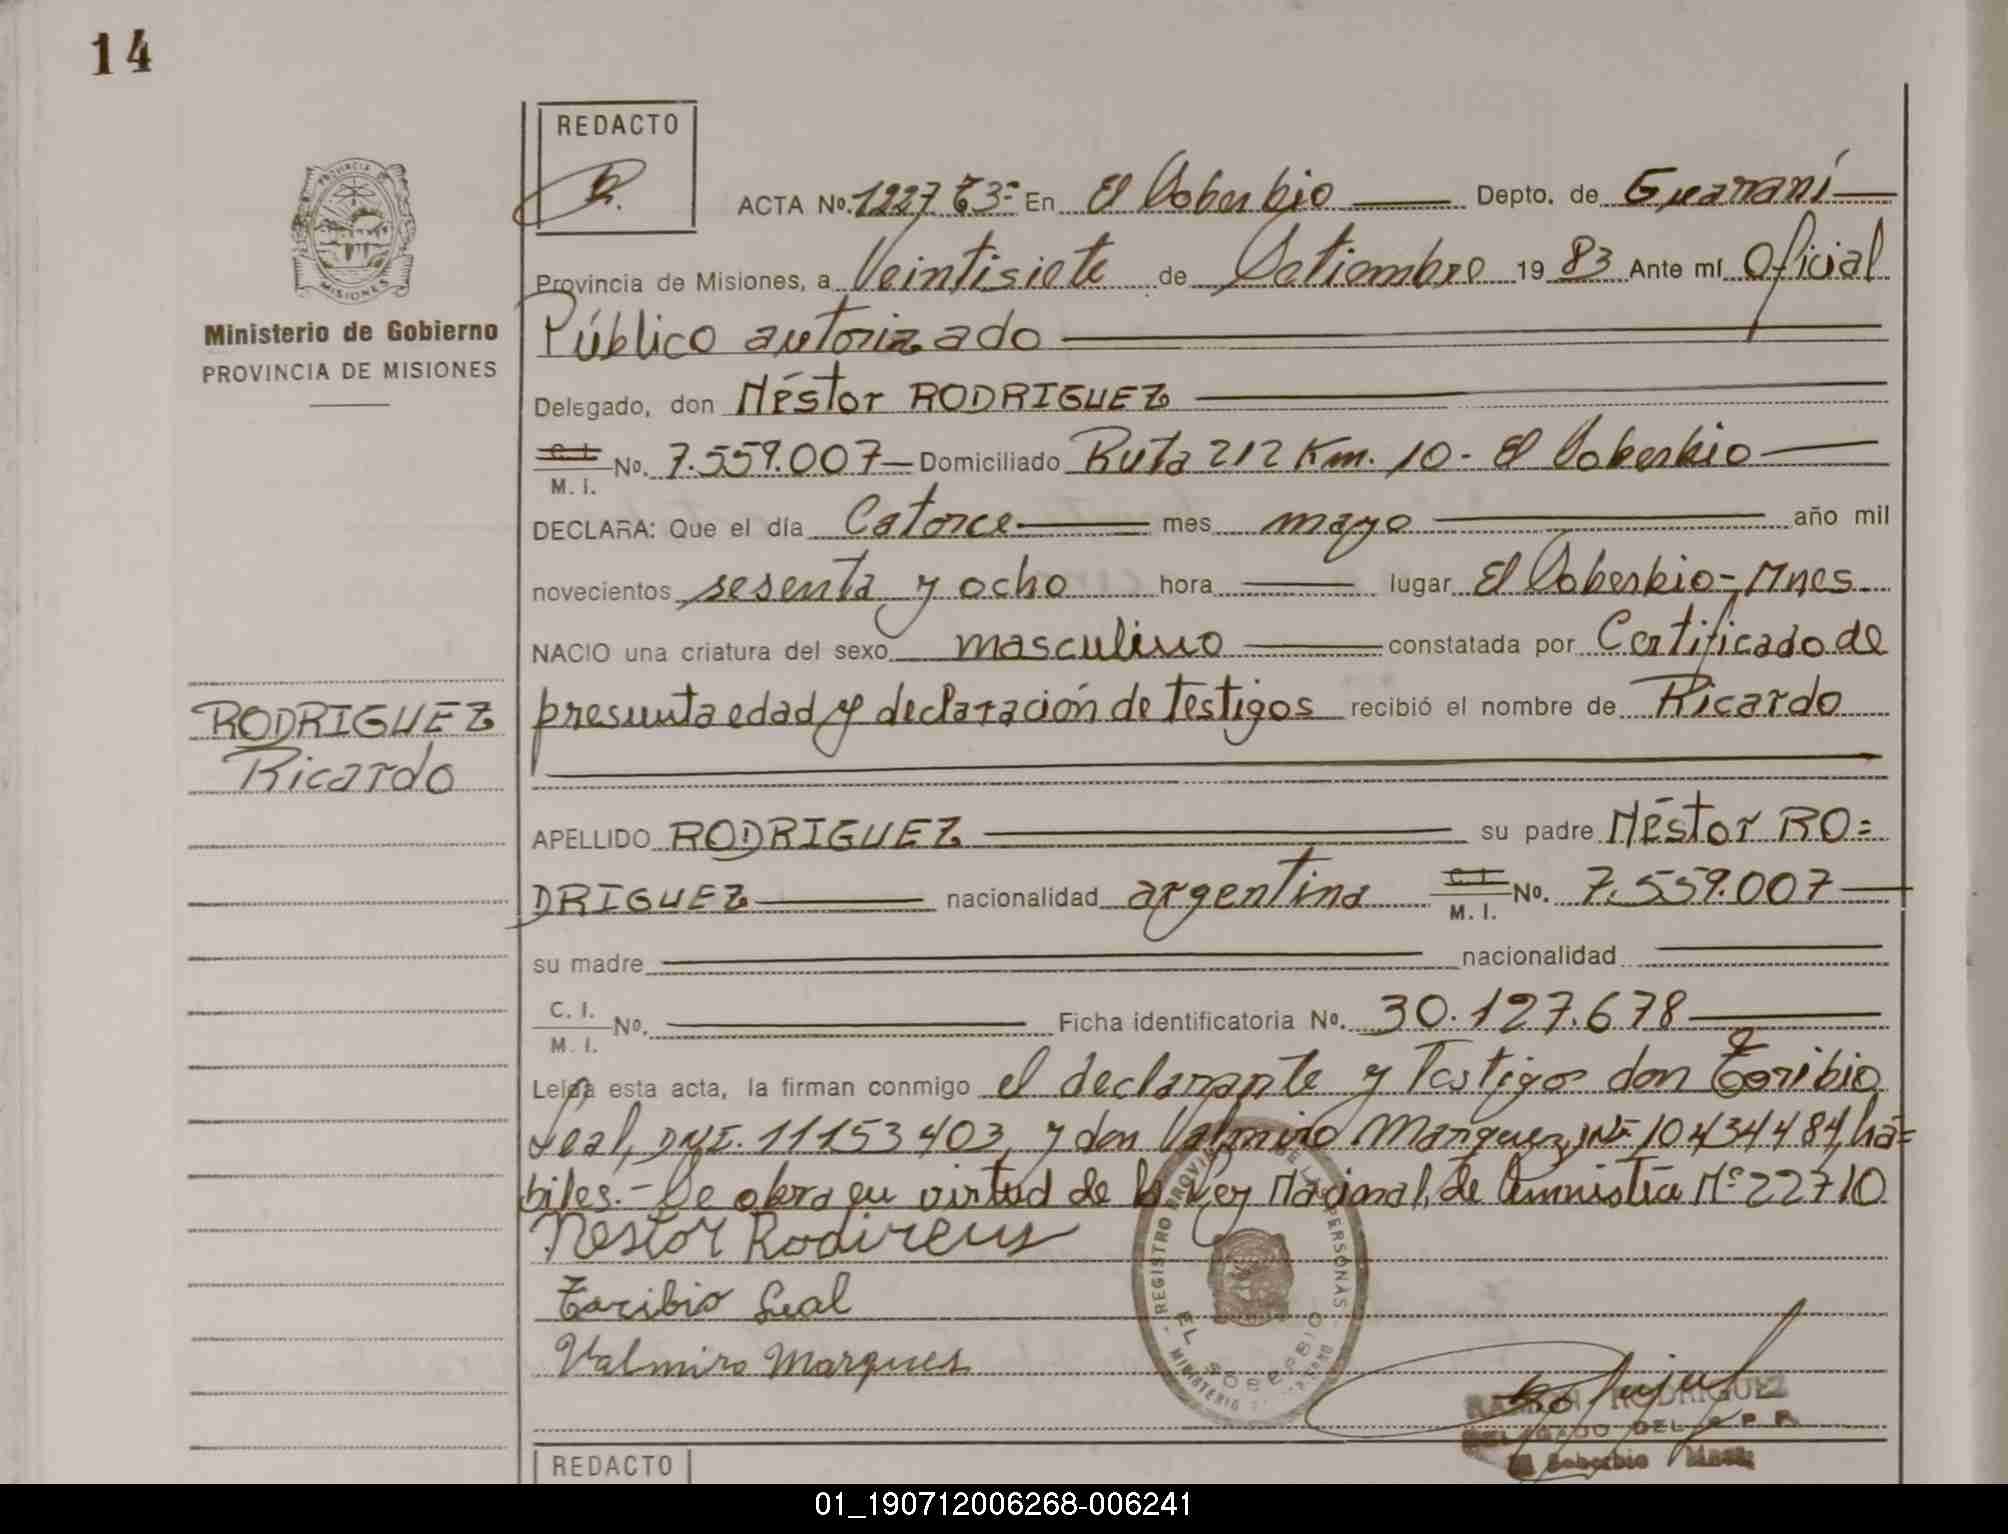 14
REDACTO
ACTA Nº. 1227 T3= En El Soberbio Depto. de Guaraní
PROVINCIA DE MISIONES
Provincia de Misiones, a Veintisiete de Setiembre 19 83 Ante mí Oficial
Ministerio de Gobierno
PROVINCIA DE MISIONES
Público autorizado
Delegado, don Néstor RODRIGUEZ
C. I. M. I. No. 7.559.007 Domiciliado Ruta 212 Km. 10 - El Soberbio
DECLARA: Que el día Catorce mes mayo año mil
novecientos sesenta y ocho hora lugar El Soberbio-Mnes.
NACIO una criatura del sexo masculino constatada por Certificado de
presunta edad y declaración de testigos recibió el nombre de Ricardo
RODRIGUEZ
Ricardo
APELLIDO RODRIGUEZ su padre Néstor RO=
DRIGUEZ nacionalidad argentina C. I. M. I. No. 7.559.007
su madre nacionalidad
C. I. M. I. No. Ficha identificatoria No. 30.127.678
Leída esta acta, la firman conmigo el declarante y Testigos don Toribio
Leal, DNI. 11153403, y don Valmiro Marquez, Nº 10434484, há=
biles.- Se obra en virtud de la Ley Nacional, de Amnistía Nº 22710
Nestor Rodireus
Toribio Leal
Valmiro Marques
REGISTRO PROVINCIAL DE LAS PERSONAS
EL SOBERBIO
RAMON RODRIGUEZ
DELEGADO DEL R P P
El Soberbio Mnes
REDACTO
01_190712006268-006241